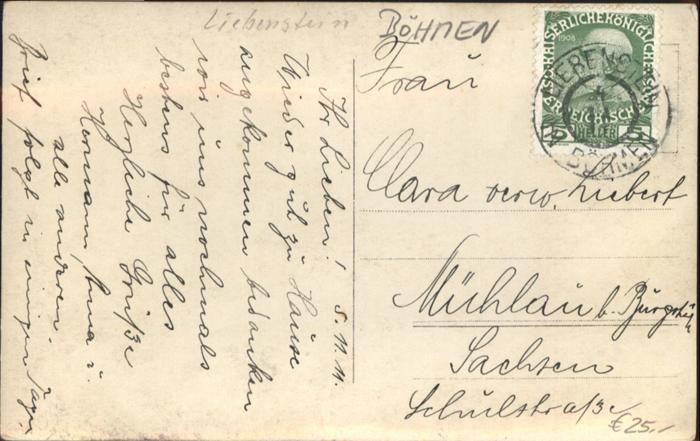 Liebenstein
BÖHMEN
Ihr Lieben! 5.11.11.
Wieder gut zu Hause
angekommen bedanken
wir uns nochmals
bestens für alles
Herzliche Grüße
Hermann, Anna u.
alle anderen
Brief folgt in einigen Tagen
KAISERLICHE KÖNIGLICHE
1908
5 HELLER 5
LIEBENSTEIN
BÖHMEN
Frau
Clara verw. Liebert
Mühlau b. Burgstädt
Sachsen
Schulstraße
€25,-